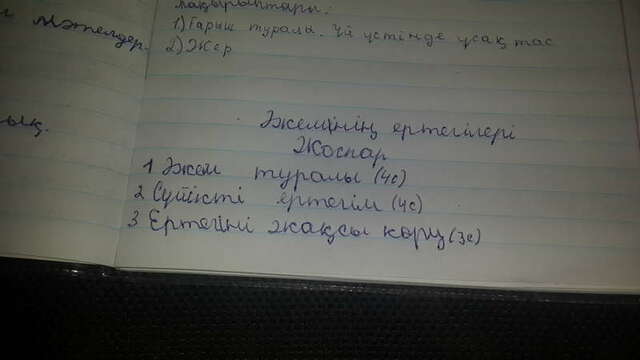 тақырыптары:
1) Ғарыш туралы. Үй үстінде ұсақ тас
2) Жер
Мәтелдер.
ық.
Әжемінің ертегілері
Жоспар
1 Әжем туралы (4с)
2 Сүйікті ертегім (4с)
3 Ертегіні жақсы көру (3с)